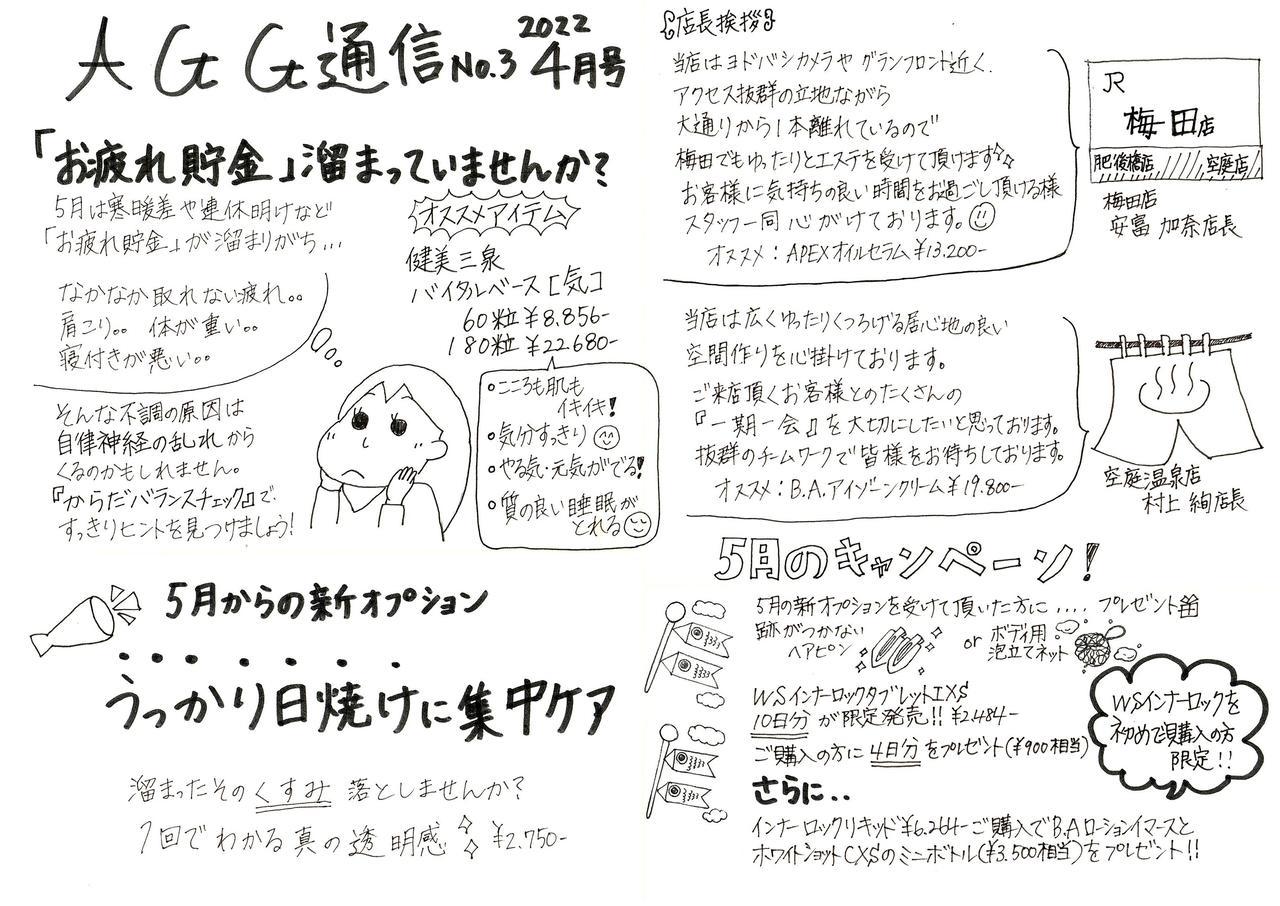 AGG通信 No.3 2022 4月号
「お疲れ貯金」溜まっていませんか?
5月は寒暖差や連休明けなど
「お疲れ貯金」が溜まりがち...
なかなか取れない疲れ。。
肩こり。。 体が重い。。
寝付きが悪い。。
そんな不調の原因は
自律神経の乱れから
くるのかもしれません。
『からだバランスチェック』で、
すっきりヒントを見つけましょう!
オススメアイテム
健美三泉
バイタルベース[気]
60粒¥8.856-
180粒¥22.680-
•こころも肌も
イキイキ!
•気分すっきり
•やる気・元気がでる!
•質の良い睡眠が
とれる
5月からの新オプション
うっかり日焼けに集中ケア
溜まったそのくすみ落としませんか?
1回でわかる真の透明感 ¥2.750-
店長挨拶
当店はヨドバシカメラやグランフロント近く、
アクセス抜群の立地ながら
大通りから1本離れているので
梅田でもゆったりとエステを受けて頂けます
お客様に気持ちの良い時間をお過ごし頂ける様
スタッフ一同心がけております。
オススメ:APEXオイルセラム¥13.200-
JR
梅田店
肥後橋店 空庭店
梅田店
安富 加奈店長
当店は広くゆったりくつろげる居心地の良い
空間作りを心掛けております。
ご来店頂くお客様とのたくさんの
『一期一会』を大切にしたいと思っております。
抜群のチームワークで皆様をお待ちしております。
オススメ:B.A.アイゾーンクリーム¥19.800-
空庭温泉店
村上 絢店長
5月のキャンペーン!
5月の新オプションを受けて頂いた方に....プレゼント
跡がつかない
ヘアピン
or ボディ用
泡立てネット
WSインナーロックタブレットIXS
10日分が限定発売!!¥2.484-
ご購入の方に4日分をプレゼント(¥900相当)
WSインナーロックを
初めてご購入の方
限定!!
さらに..
インナーロックリキッド¥6.264-ご購入でB.Aローションイマースと
ホワイトショットCXSのミニボトル(¥3.500相当)をプレゼント!!